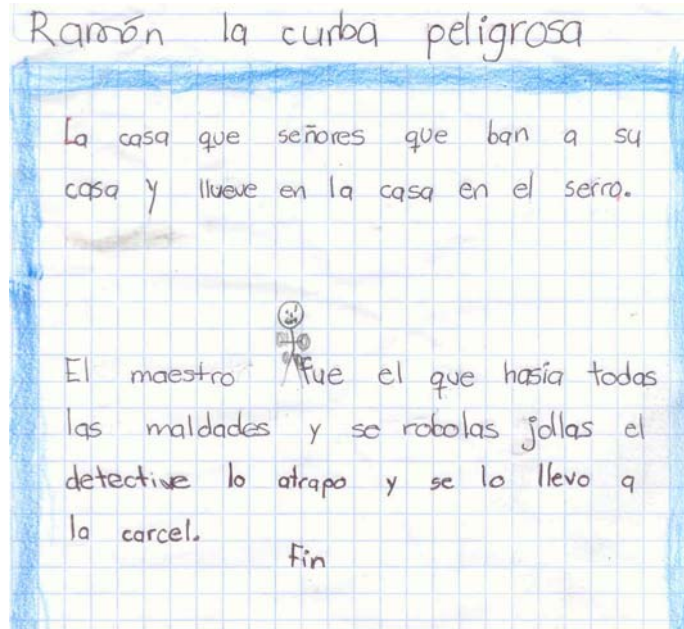 Ramón la curba peligrosa
La casa que señores que ban a su
casa y llueve en la casa en el serro.
El maestro fue el que hasia todas
las maldades y se robolas jollas el
detective lo atrapo y se lo llevo a
la carcel.
Fin